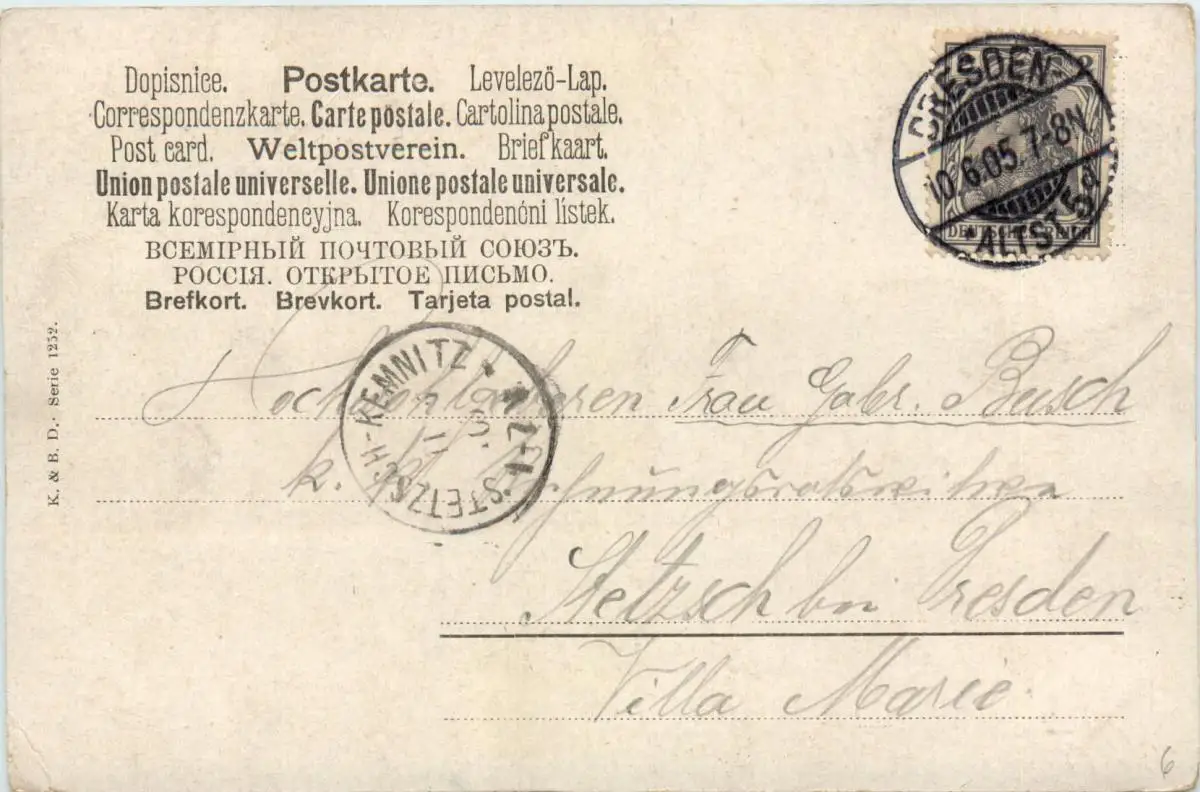 Dopisnice. Postkarte. Levelező-Lap.
Correspondenzkarte. Carte postale. Cartolina postale.
Post card. Weltpostverein. Briefkaart.
Union postale universelle. Unione postale universale.
Karta korespondencyjna. Korespondenčni lístek.
ВСЕМІРНЫЙ ПОЧТОВЫЙ СОЮЗЪ.
РОССІЯ. ОТКРЫТОЕ ПИСЬМО.
Brefkort. Brevkort. Tarjeta postal.
DRESDEN-
10.6.05. 7-8N
ALTST.
DEUTSCHES REICH
K. & B. D.. Serie 1252.
STETZSCH-KEMNITZ
Frau Gabr. Busch
k. k.
Stetzsch bei Dresden
Villa Marie
6